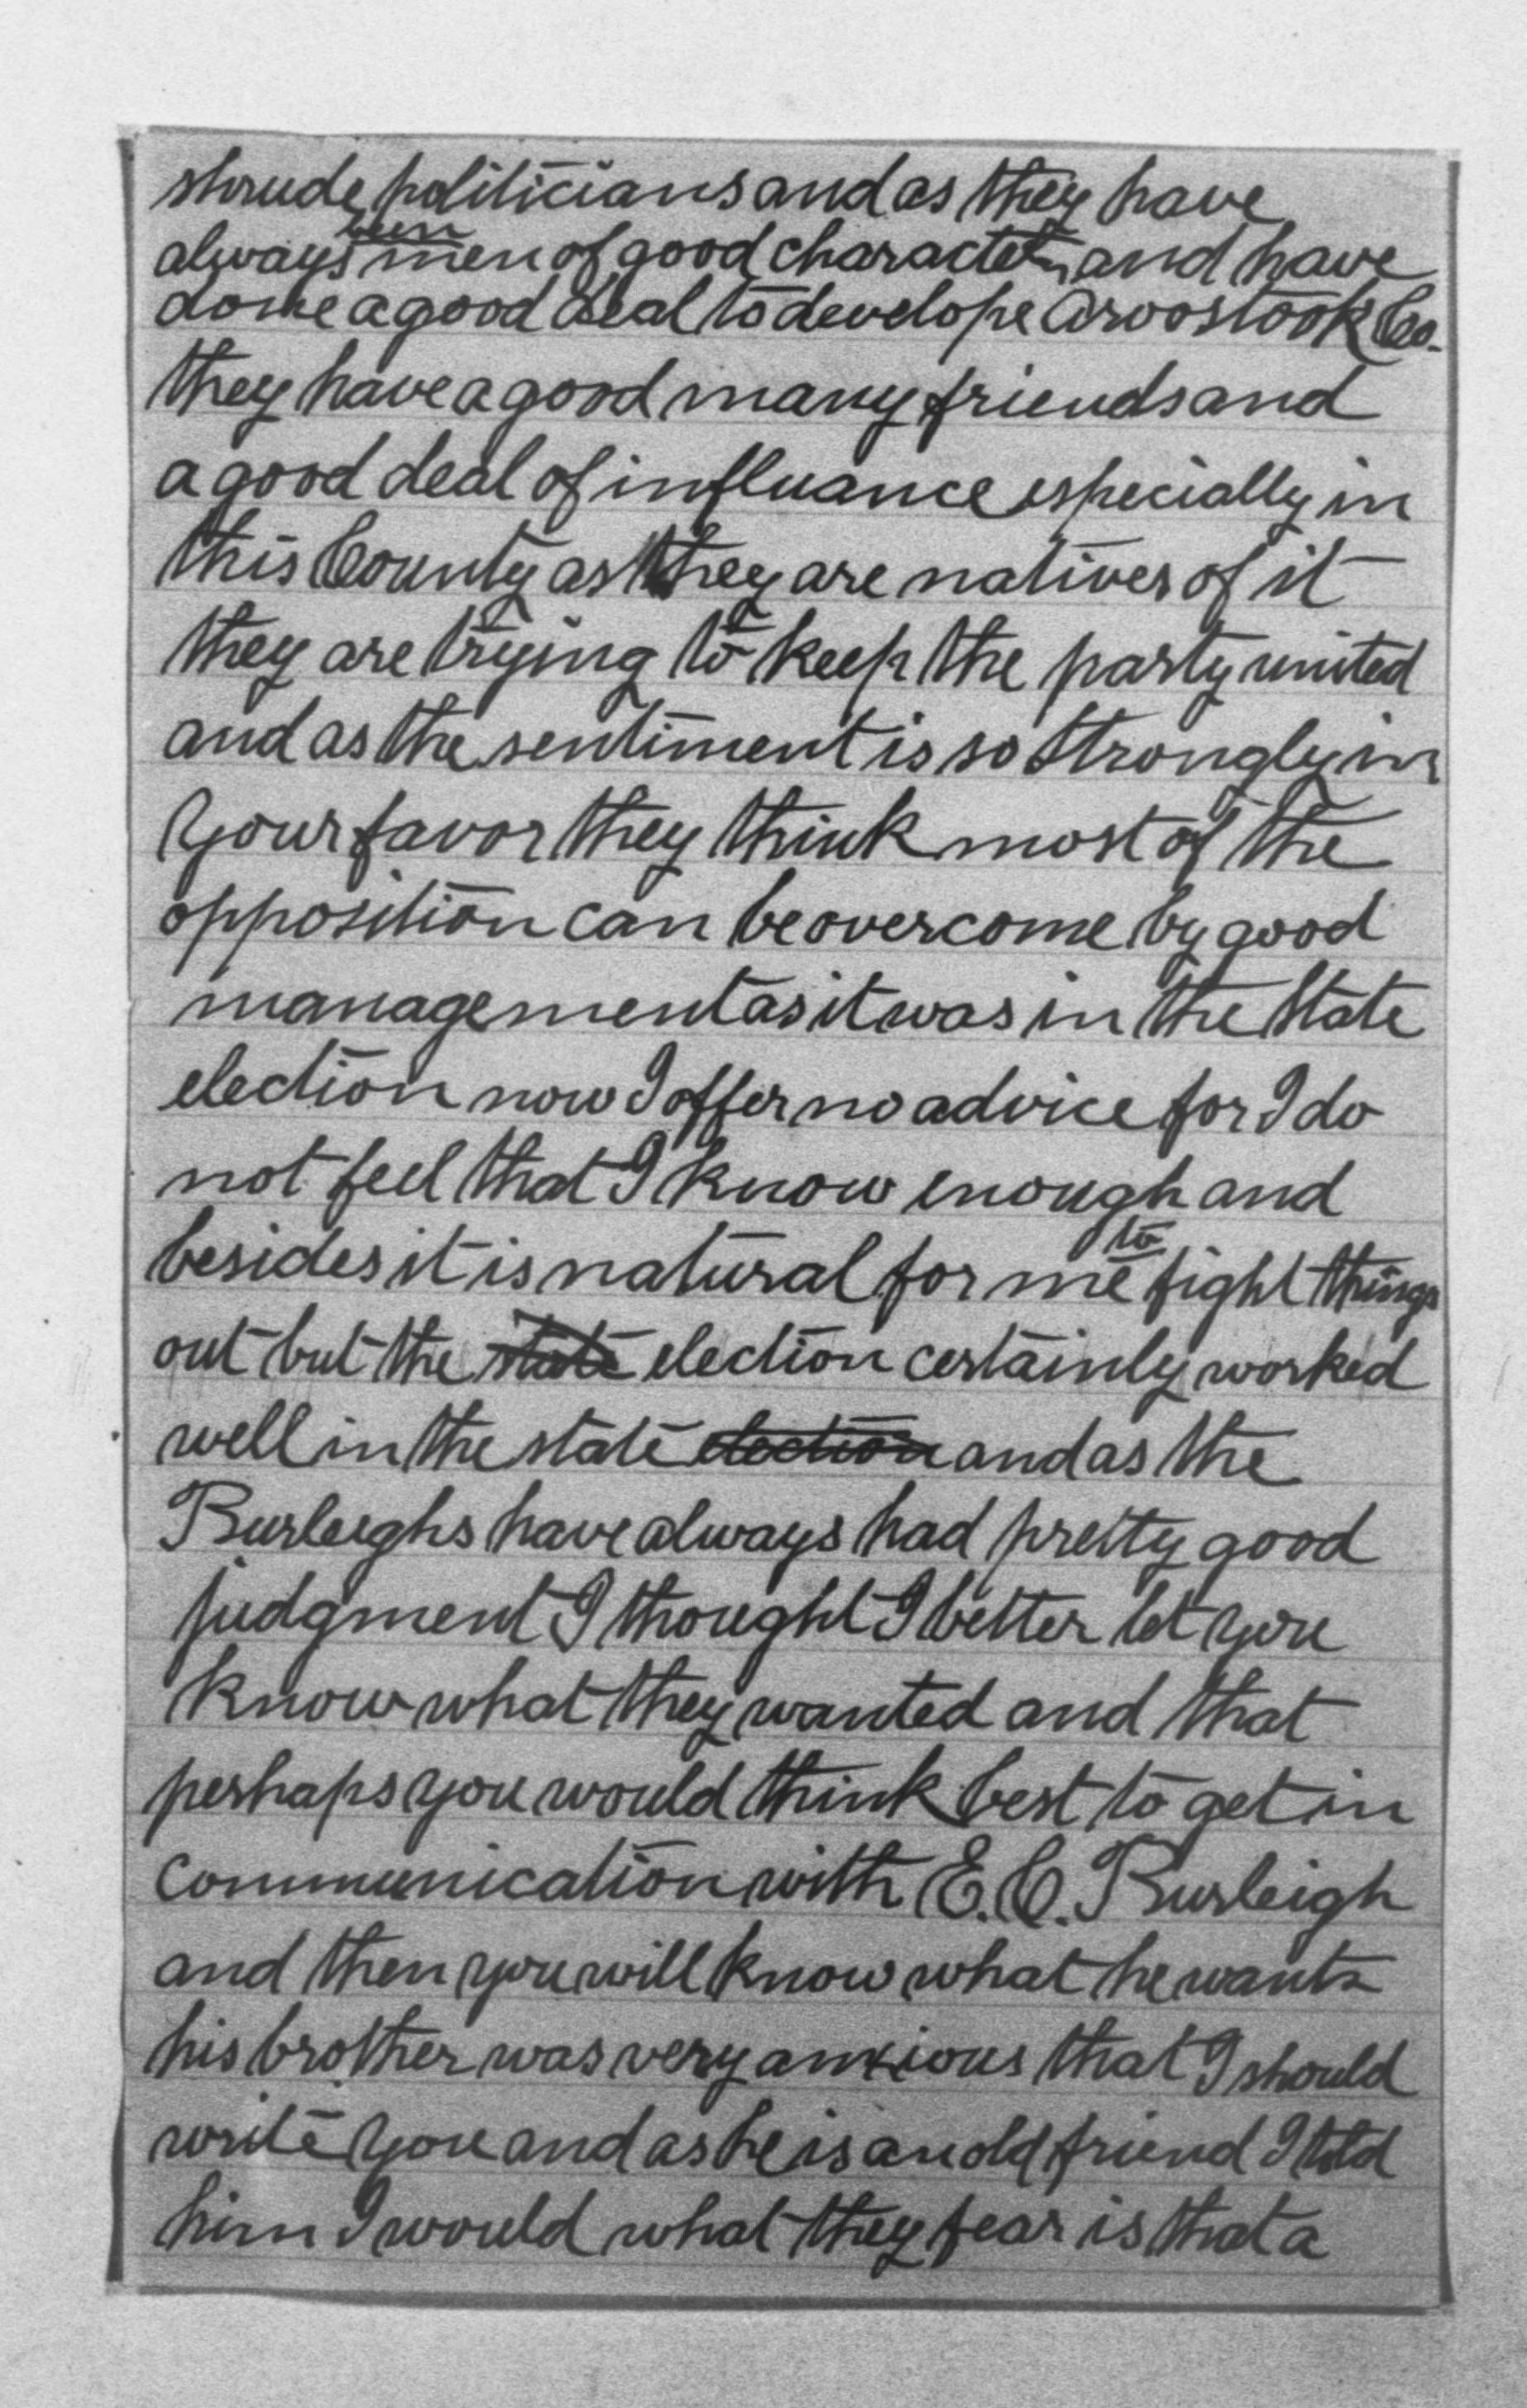 shrude politicians and as they have
always been men of good character and have
done a good deal to develope Aroostook Co.
they have a good many friends and
a good deal of influance especially in
this County as they are natives of it
they are trying to keep the party united
and as the sentiment is so strongly in
your favor they think most of the
opposition can be overcome by good
management as it was in the State
election now I offer no advice for I do
not feel that I know enough and
besides it is natural for me to fight things
out but the state election certainly worked
well in the state election and as the
Burleighs have always had pretty good
judgment I thought I better let you
know what they wanted and that
perhaps you would think best to get in
communication with E. C. Burleigh
and then you will know what he wants
his brother was very anxious that I should
write you and as he is an old friend I told
him I would what they fear is that a